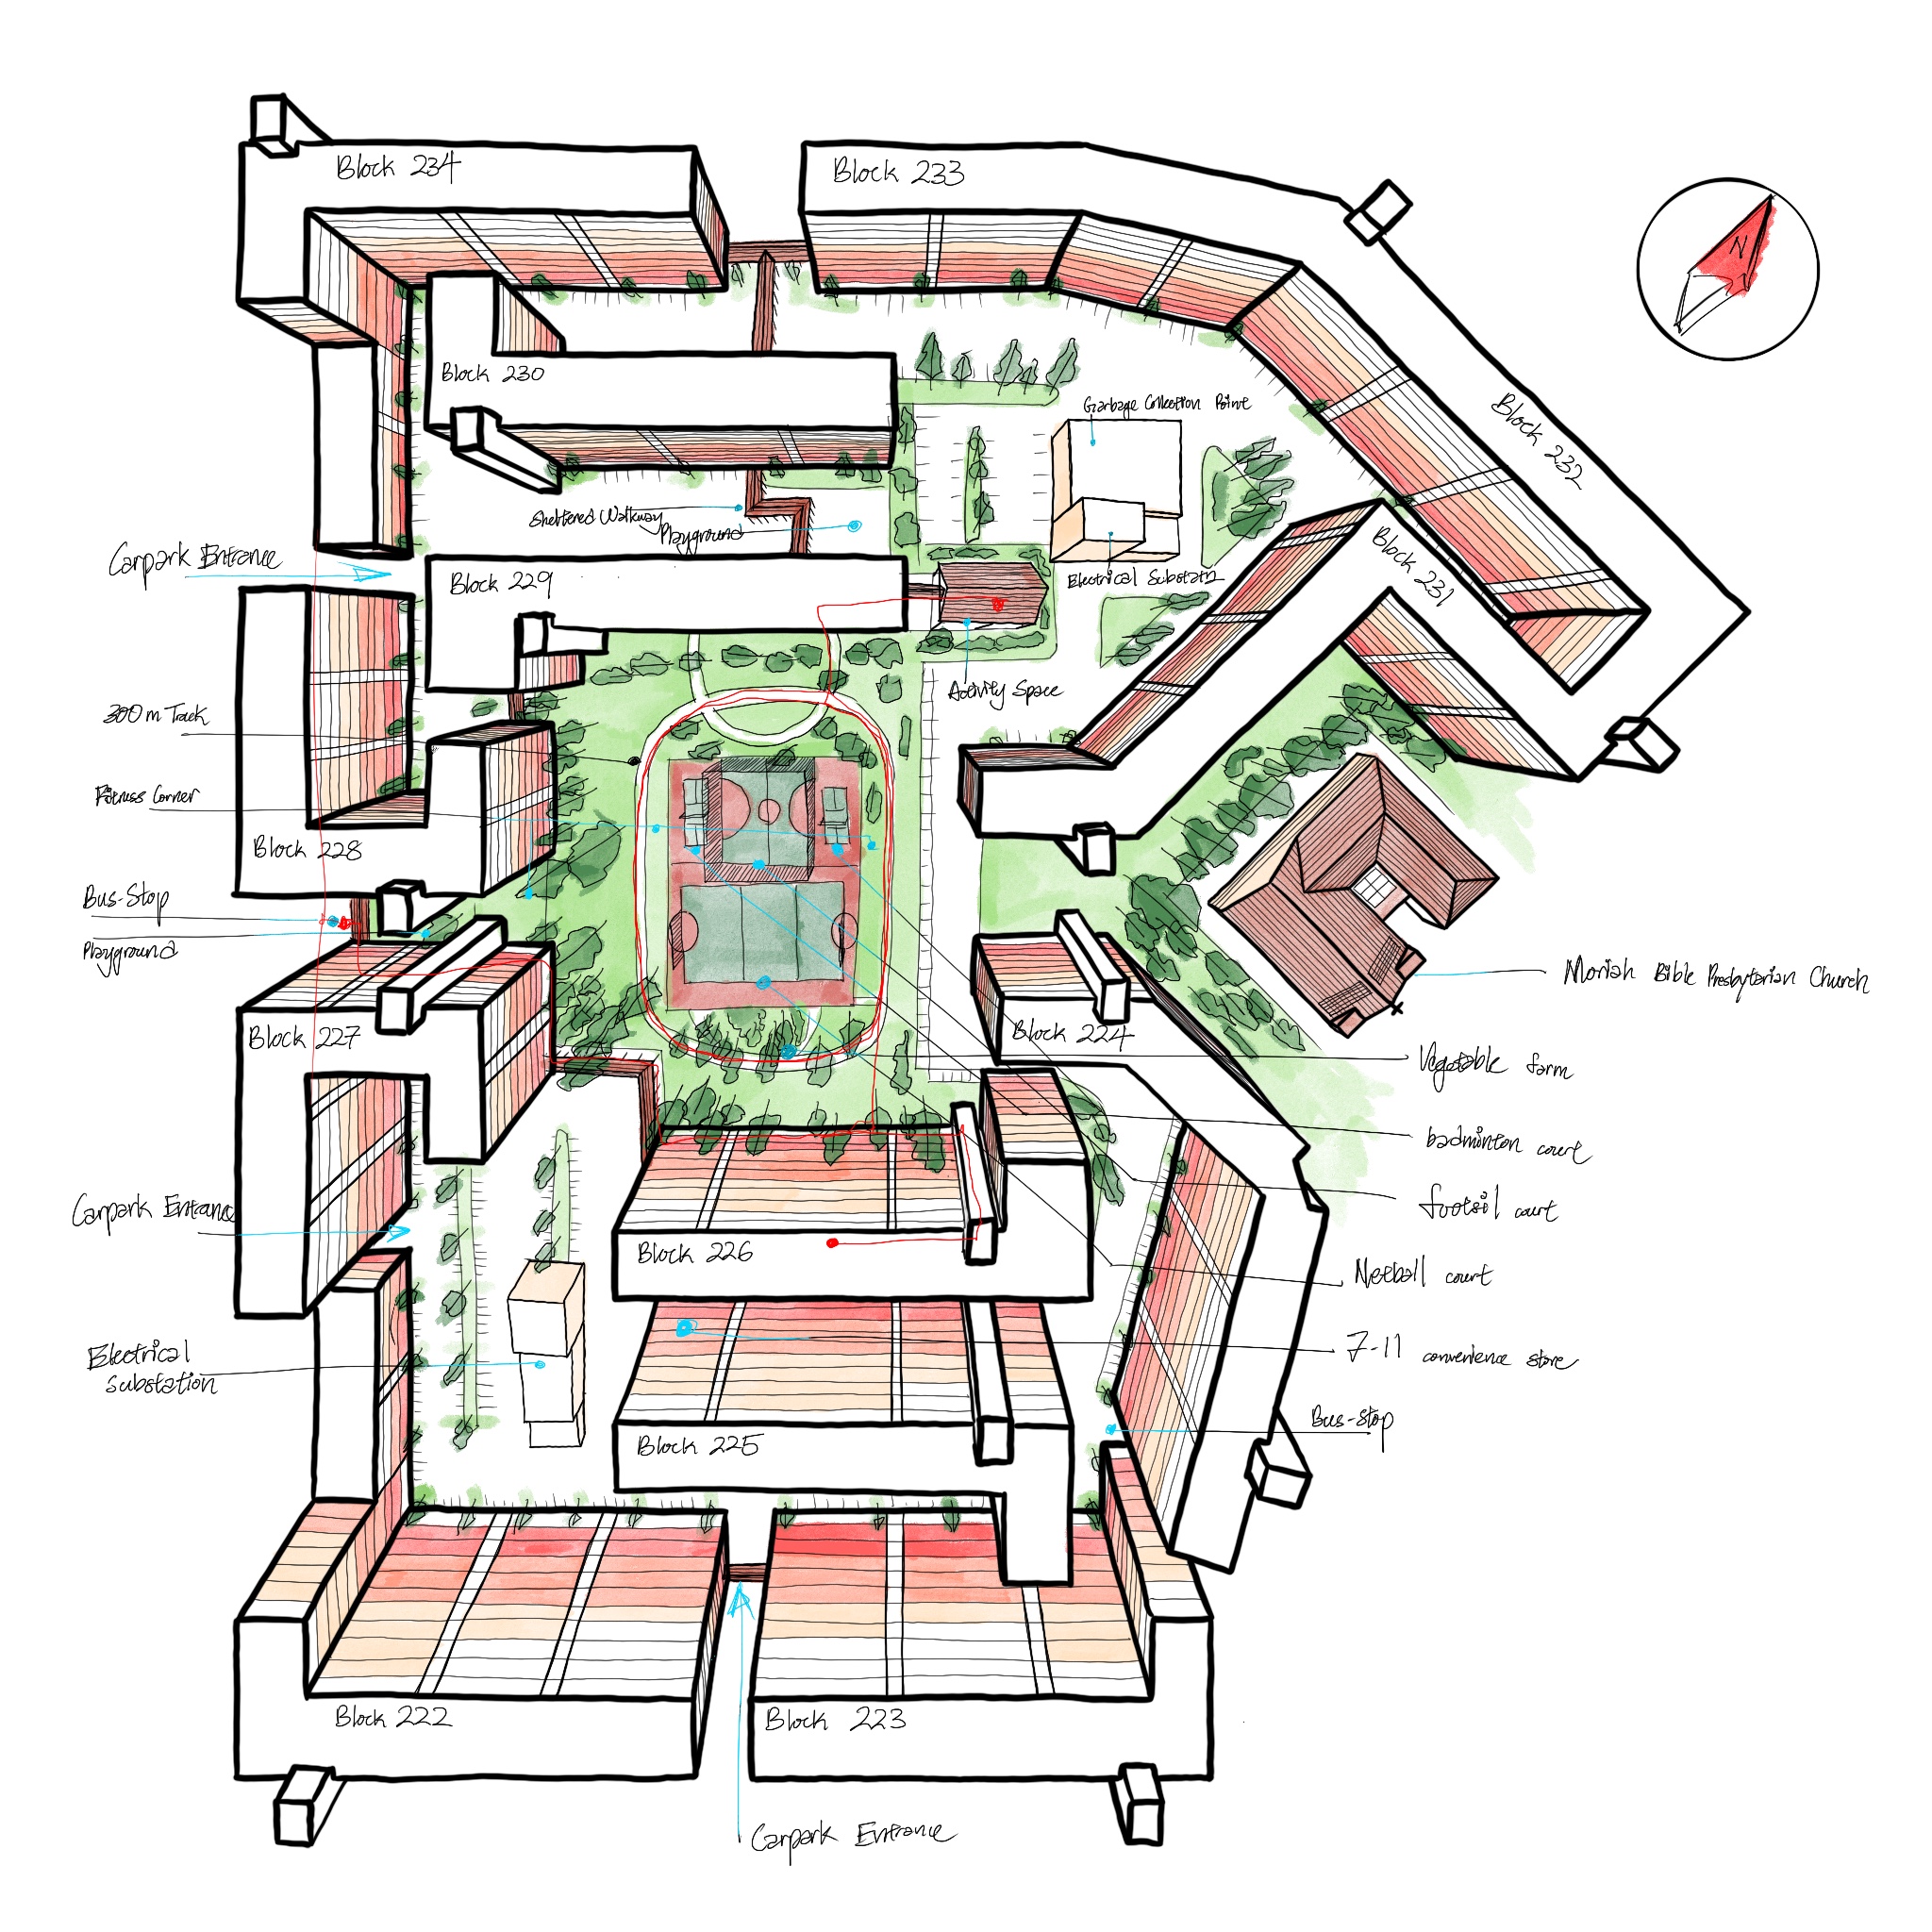 Block 234
Block 233
N
Block 230
Garbage Collection Point
Block 232
Sheltered Walkway
Playground
Carpark Entrance
Block 229
Electrical
Block 231
300m Track
Activity Space
Fitness Corner
Block 228
Bus-Stop
Playground
Moriah Bible Presbyterian Church
Block 227
Block 224
Vegetable farm
badminton court
Carpark Entrance
court
Block 226
Netball court
Electrical
substation
7-11 convenience store
Bus-Stop
Block 225
Block 222
Block 223
Carpark Entrance